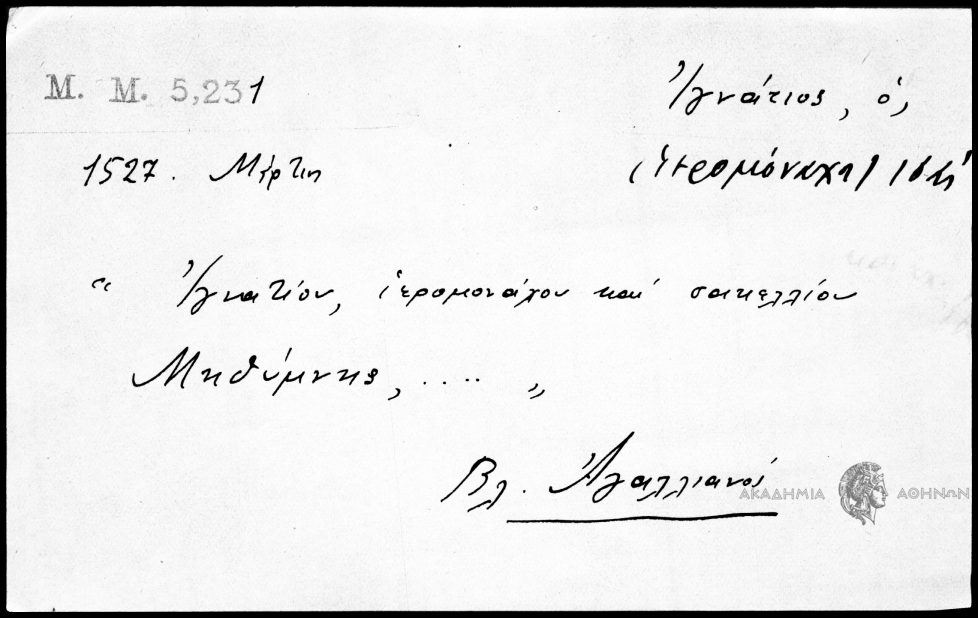 M. M. 5,231
Ἰγνάτιος, ὁ,
1527. Μάρτιος
(ἱερομόναχος)
“ Ἰγνατίου, ἱερομονάχου καὶ σακελλίου
Μηθύμνης, ..... „
Βλ. Ἀγαλλιανός
ΑΚΑΔΗΜΙΑ ΑΘΗΝΩΝ